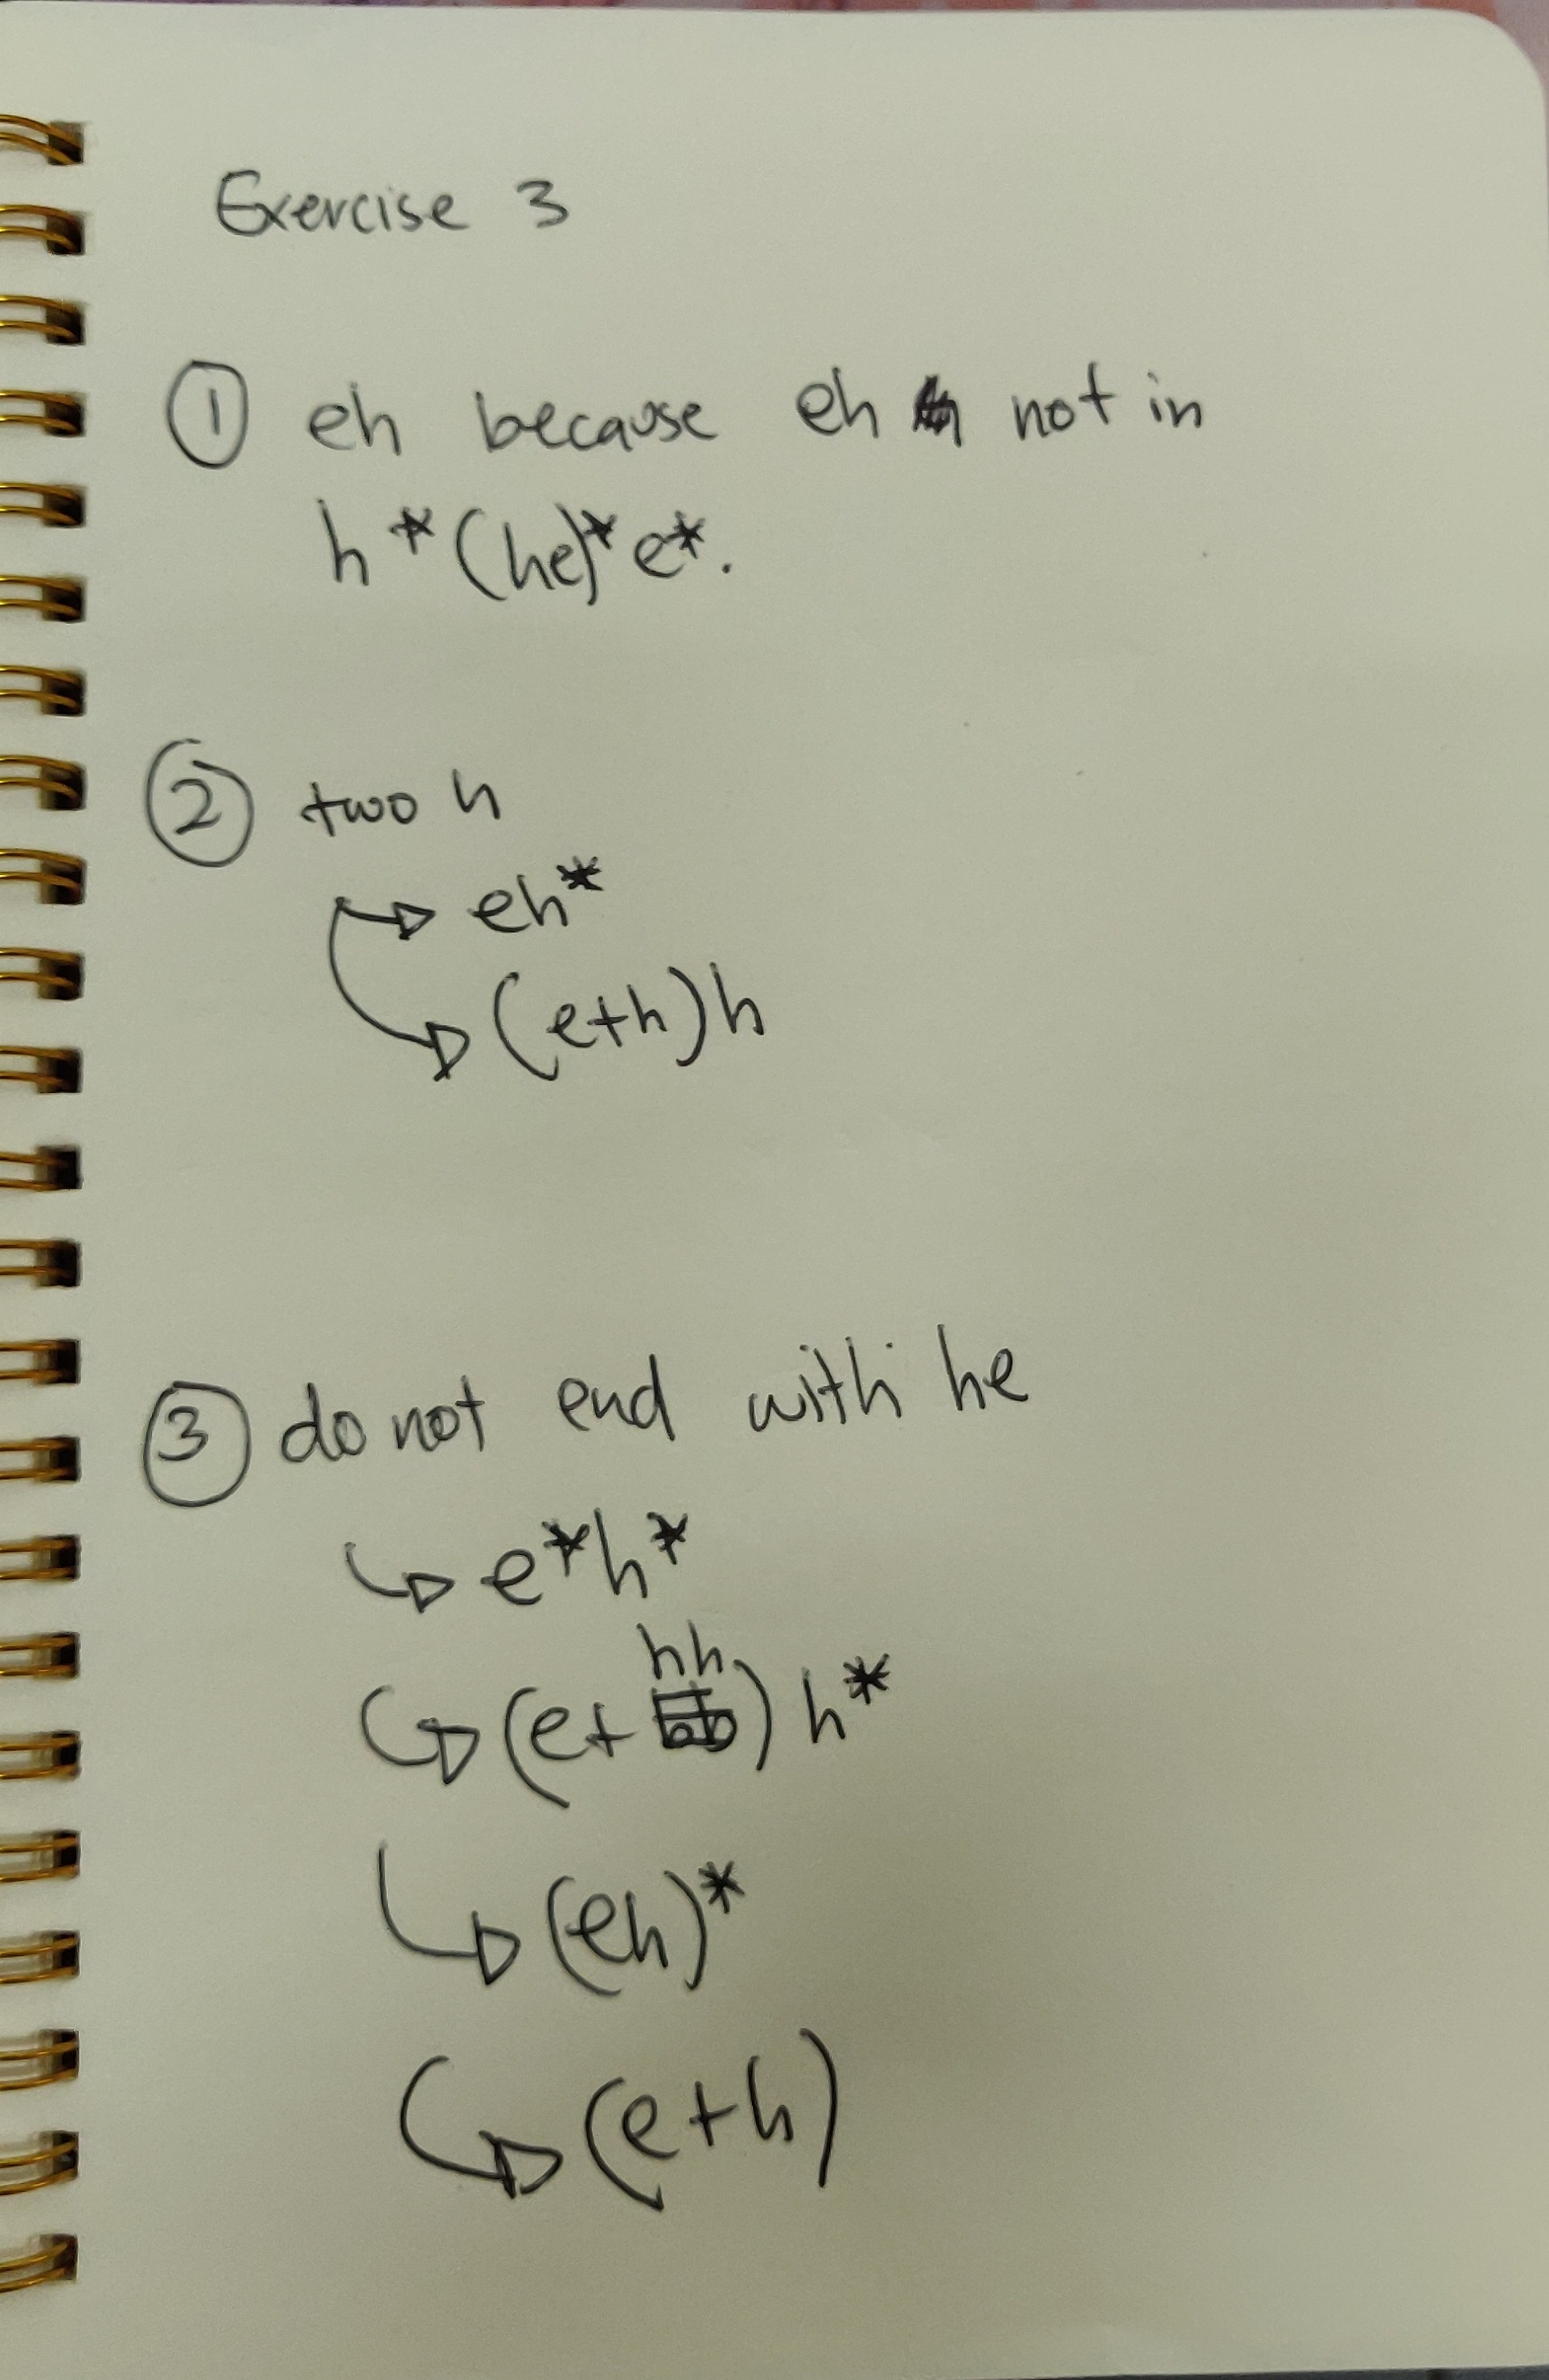 Exercise 3
① eh because eh not in
h*(he)*e*.
② two h
eh*
(e+h)h
③ do not end with he
e*h*
(e+hh)h*
(eh)*
(e+h)